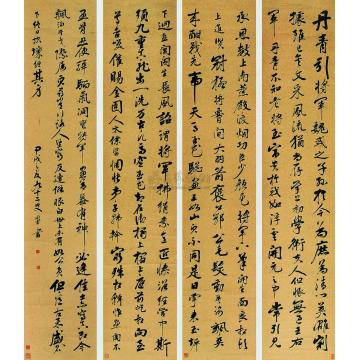 丹青引將軍魏武之子孫於今為庶為清門英雄割
據雖已矣文采風流猶尚存學書初學衛夫人但恨無過王右
軍丹青不知老將至富貴於我如浮雲開元之中常引見
承恩數上南薰殿凌煙功臣少顏色將軍下筆開生面良
相頭上進賢冠猛將腰間大羽箭褒公鄂公毛髮動英姿颯爽
來酣戰先帝天馬玉花驄畫工如山貌不同是日牽來赤墀
下迥立閶闔生長風詔謂將軍拂絹素意匠慘澹經營中斯
須九重真龍出一洗萬古凡馬空玉花卻在御榻上榻上庭前屹相向至
尊含笑催賜金圉人太僕皆惆悵弟子韓幹早入室亦能畫馬窮殊相幹惟畫肉不
畫骨忍使驊騮氣凋喪將軍畫善蓋有神必逢佳士亦寫真即今
飄泊干戈際屢貌尋常行路人途窮反遭俗眼白世上未有如公貧但看古來盛名
下終日坎壈纏其身